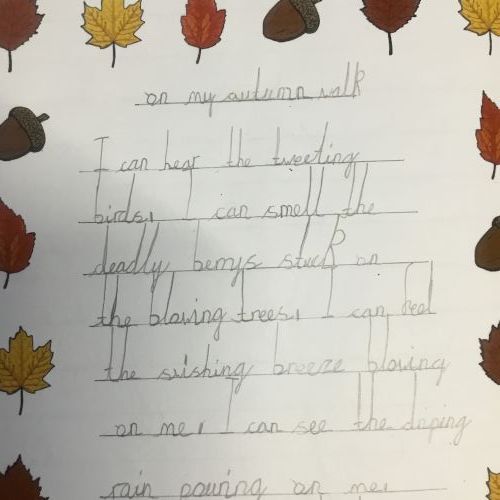 on my autumn walk
I can hear the tweeting
birds, I can smell the
deadly berrys stuck on
the blowing trees, I can feel
the swishing breeze blowing
on me, I can see the driping
rain pouring on me,